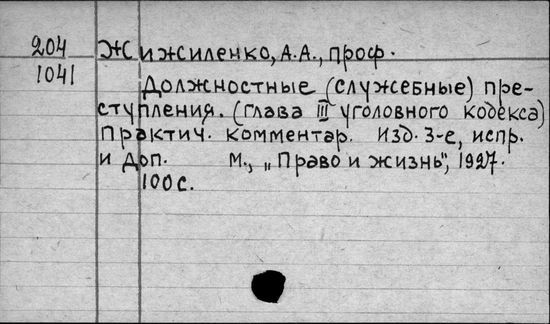 204 Жижиленко, А.А., проф.
1041
Должностные (служебные) пре-
ступления. (глава III уголовного кодекса)
Практич. комментар. Изд. 3-е, испр.
и доп. М., „Право и жизнь", 1927.
100 с.